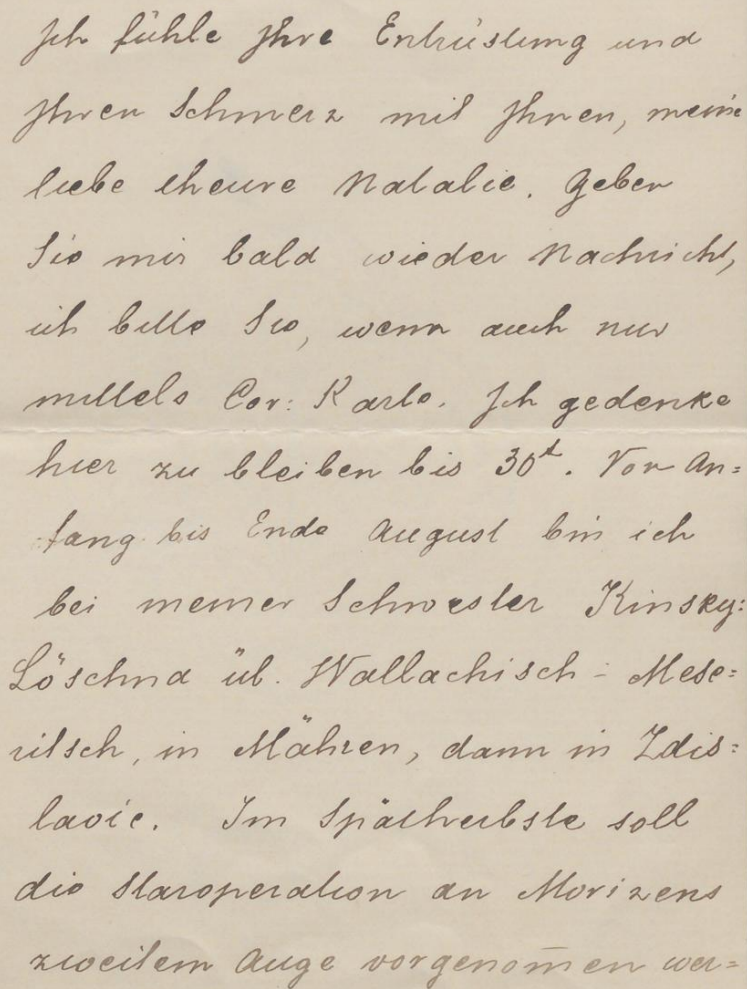 Ich fühle Ihre Entrüstung und
Ihren Schmerz mit Ihnen, meine
liebe theure Natalie. Geben
Sie mir bald wieder Nachricht,
ich bitte Sie, wenn auch nur
mittels Cor: Karte. Ich gedenke
hier zu bleiben bis 30t. Von An=
fang bis Ende August bin ich
bei meiner Schwester Kinsky:
Löschna üb. Wallachisch-Mese=
ritsch, in Mähren, dann in Zdis=
lavic. Im Spätherbste soll
die Staroperation an Morizens
zweitem Auge vorgenom̅en wer=